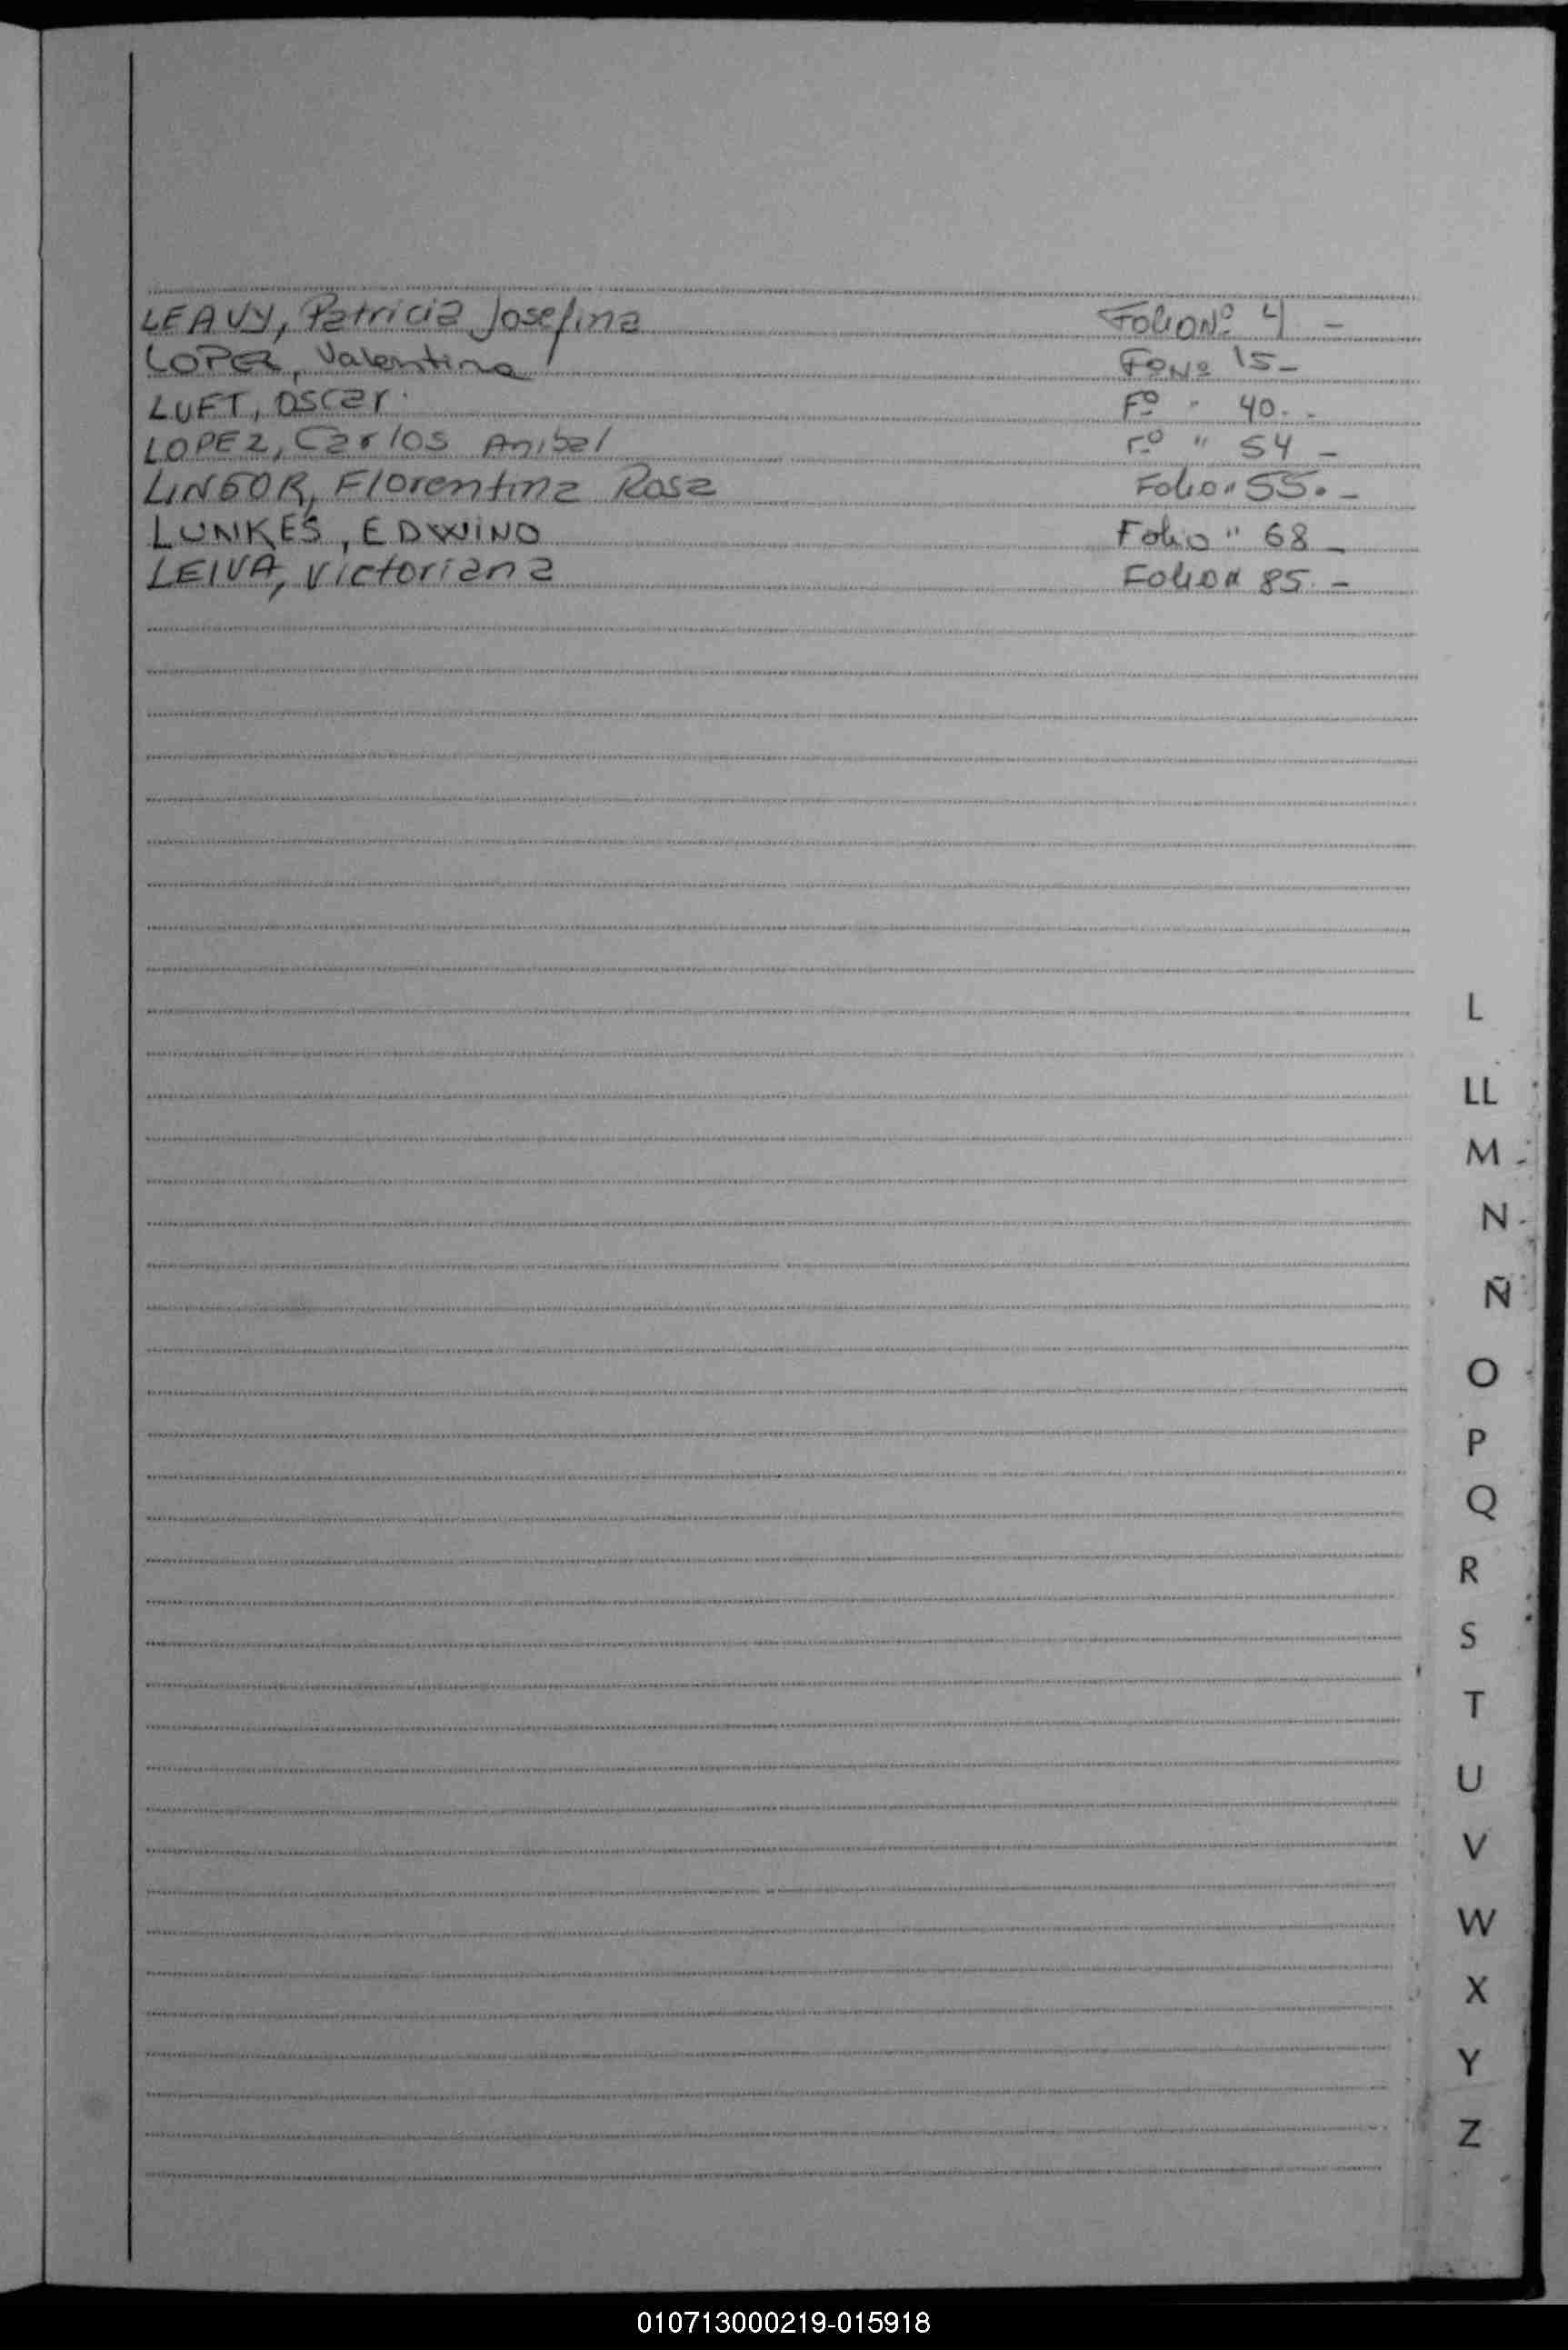 LEAVY, Patricia Josefina Folio Nº 4 -
LOPEZ, Valentina Fº Nº 15 -
LUFT, Oscar. Fº " 40. -
LOPEZ, Carlos Anibal Fº " 54 -
LINGOR, Florentina Rosa Folio " 55. -
LUNKES, EDWINO Folio " 68 -
LEIVA, Victoriana Folio " 85. -
L
LL
M
N
Ñ
O
P
Q
R
S
T
U
V
W
X
Y
Z
010713000219-015918